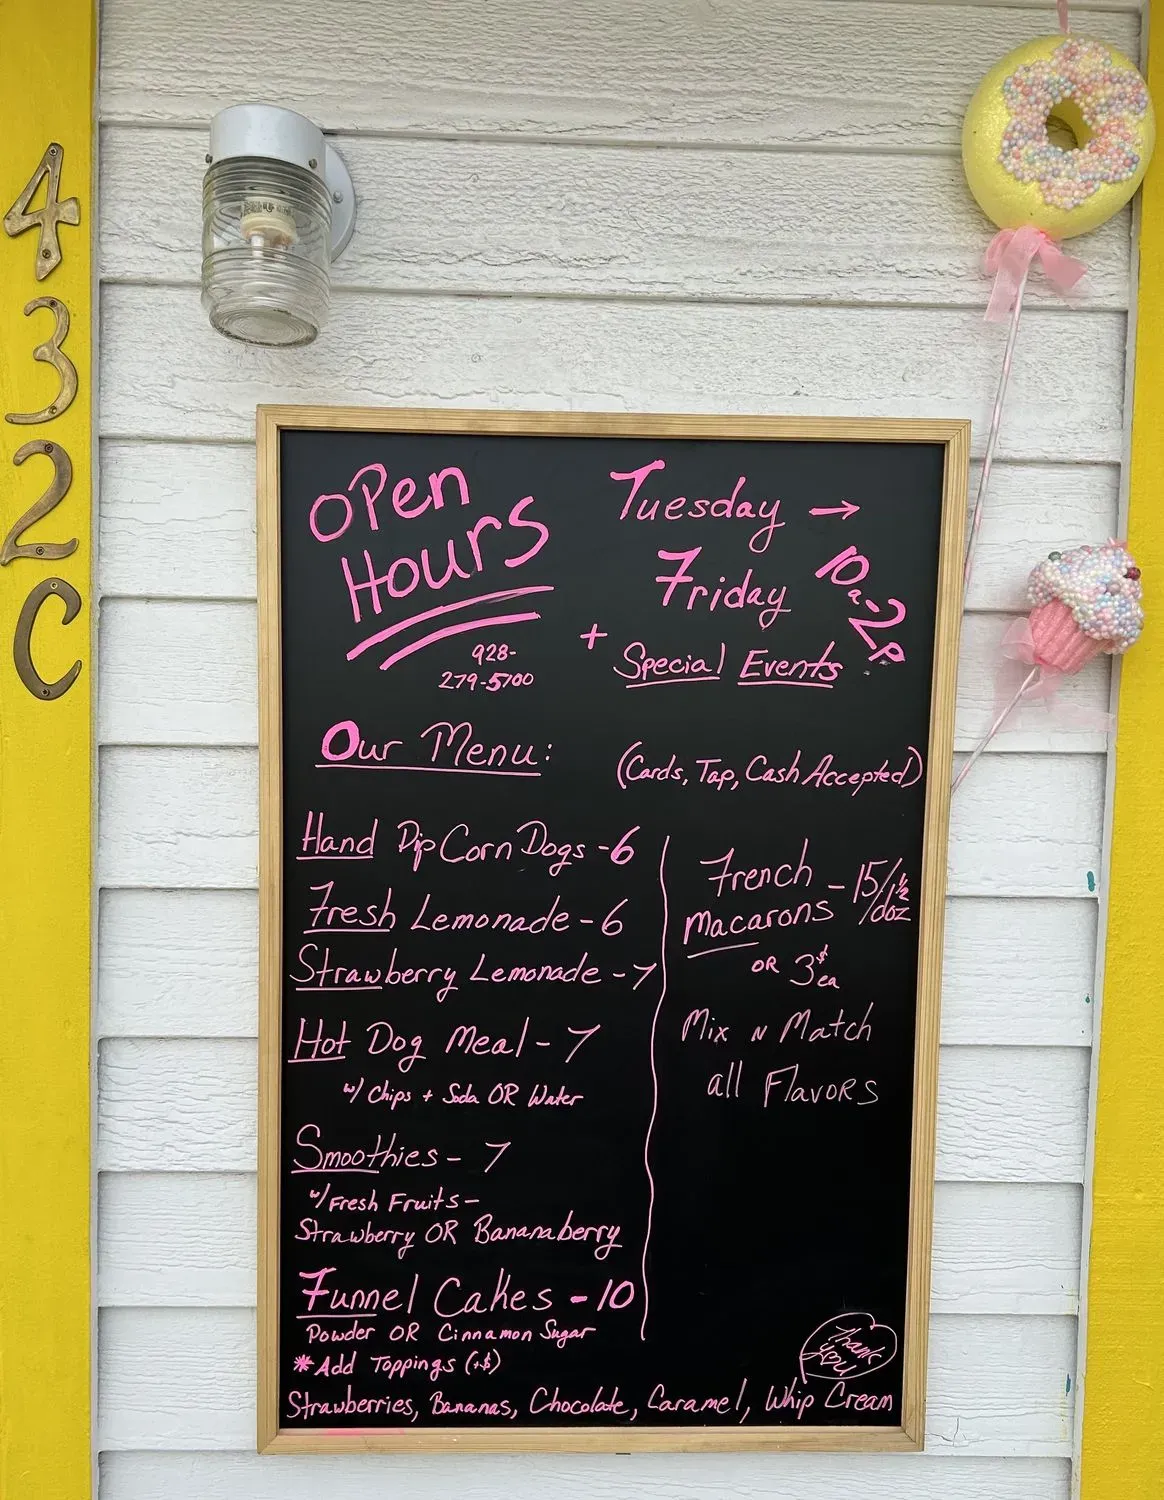 4
3
2
C
OPen
Hours
928-
279-5700
Tuesday →
Friday
10a-2P
+ Special Events
Our Menu:
(Cards, Tap, Cash Accepted)
Hand Dip Corn Dogs - 6
Fresh Lemonade - 6
Strawberry Lemonade - 7
Hot Dog Meal - 7
w/ Chips + Soda OR Water
Smoothies - 7
w/ Fresh Fruits -
Strawberry OR Bananaberry
Funnel Cakes - 10
Powder OR Cinnamon Sugar
*Add Toppings (+$)
Strawberries, Bananas, Chocolate, Caramel, Whip Cream
French
macarons - 15/ 1/2
/doz
OR 3$ ea
Mix N Match
all Flavors
Thank
you